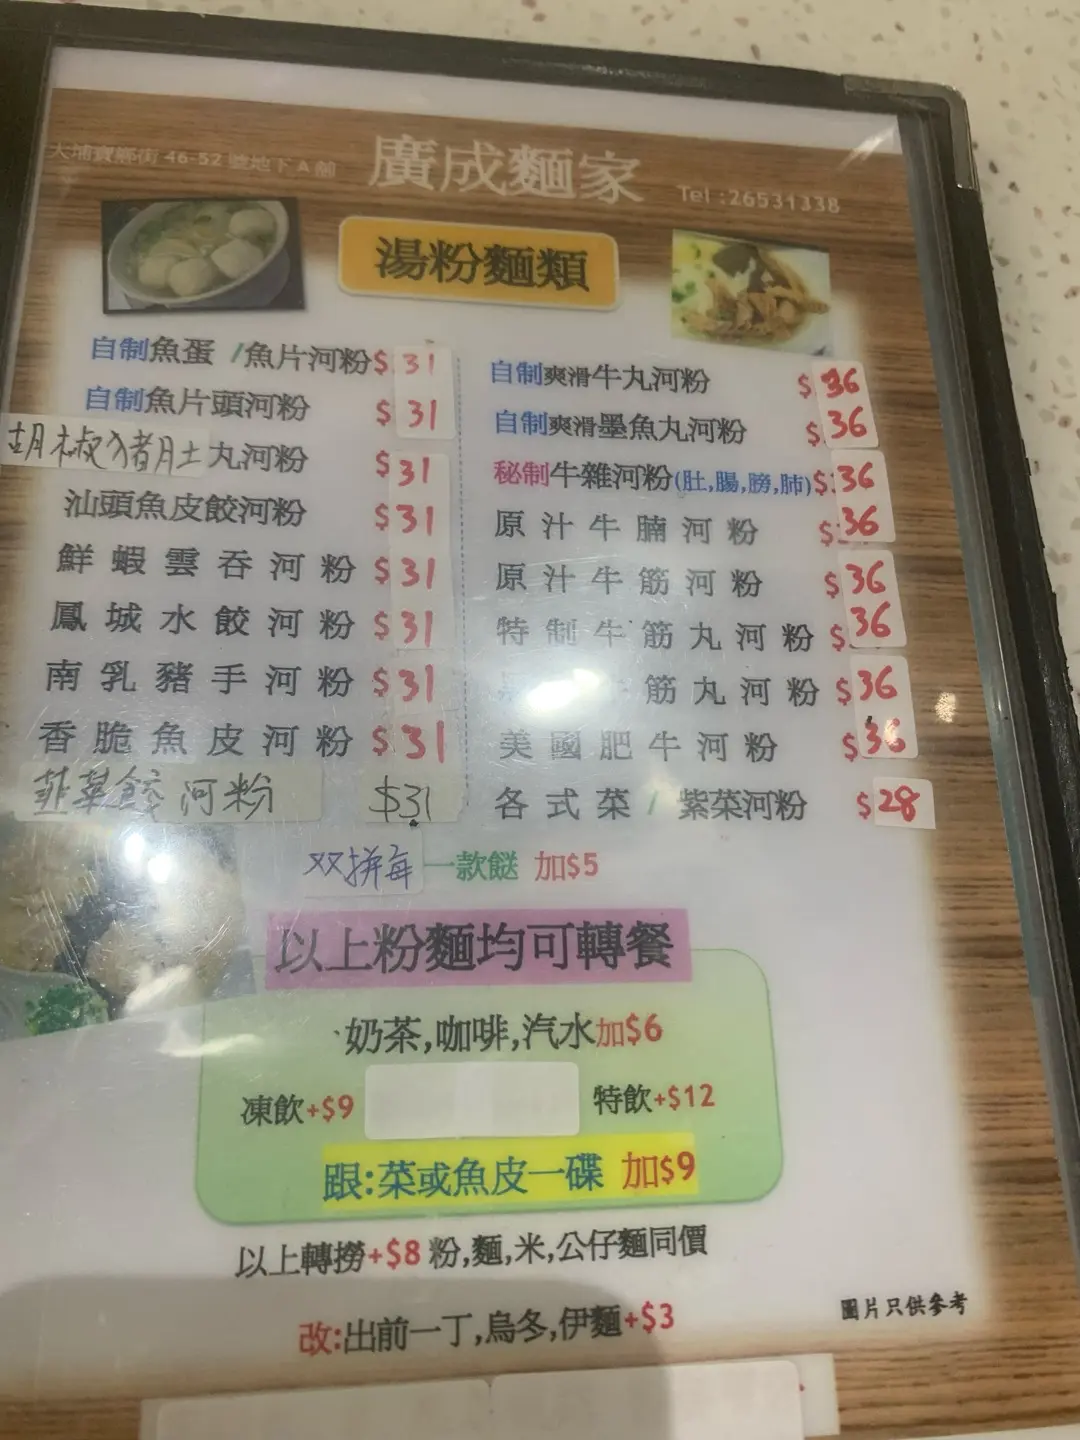 大埔寶鄉街 46-52 號地下 A 舖
廣成麵家
Tel :26531338
湯粉麵類
自制魚蛋 /魚片河粉$31
自制魚片頭河粉 $31
胡椒豬肚丸河粉 $31
汕頭魚皮餃河粉 $31
鮮蝦雲吞河粉 $31
鳳城水餃河粉 $31
南乳豬手河粉 $31
香脆魚皮河粉 $31
韮菜餃河粉 $31
自制爽滑牛丸河粉 $36
自制爽滑墨魚丸河粉 $36
秘制牛雜河粉(肚,腸,膀,肺)$36
原汁牛腩河粉 $36
原汁牛筋河粉 $36
特制牛筋丸河粉 $36
筋丸河粉 $36
美國肥牛河粉 $36
各式菜 / 紫菜河粉 $28
双拼每一款餸 加$5
以上粉麵均可轉餐
奶茶,咖啡,汽水加$6
凍飲+$9 特飲+$12
跟:菜或魚皮一碟 加$9
以上轉撈+$8 粉,麵,米,公仔麵同價
改:出前一丁,烏冬,伊麵+$3
圖片只供參考